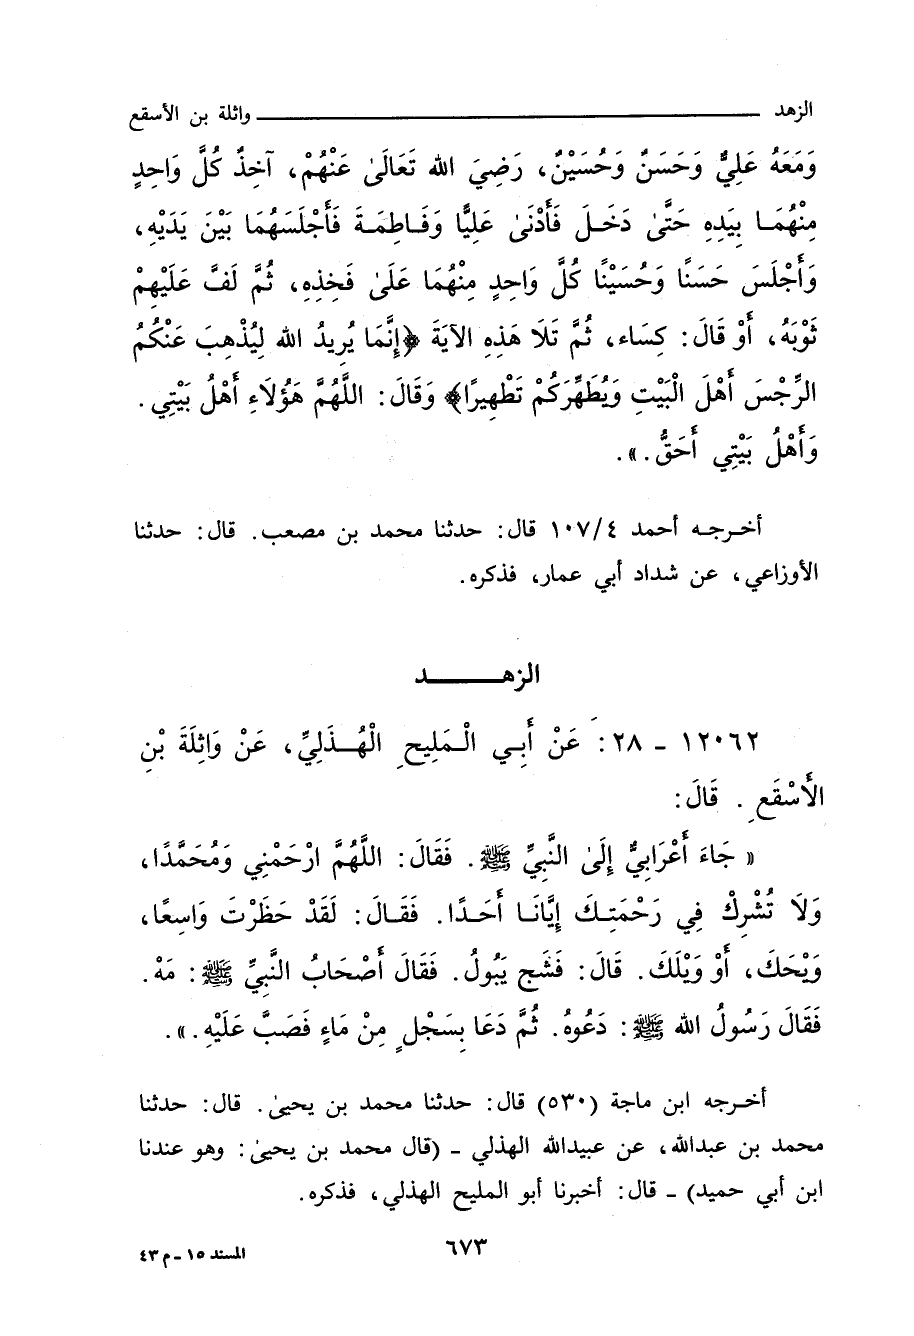 الزهد ــــــــــ واثلة بن الأسقع
وَمَعَهُ عَلِيٌّ وَحَسَنٌ وَحُسَيْنٌ، رَضِيَ الله تَعَالَىٰ عَنْهُمْ، آخِذٌ كُلَّ وَاحِدٍ
مِنْهُمَا بِيَدِهِ حَتَّىٰ دَخَلَ فَأَدْنَىٰ عَلِيًّا وَفَاطِمَةَ فَأَجْلَسَهُمَا بَيْنَ يَدَيْهِ،
وَأَجْلَسَ حَسَنًا وَحُسَيْنًا كُلَّ وَاحِدٍ مِنْهُمَا عَلَىٰ فَخِذِهِ، ثُمَّ لَفَّ عَلَيْهِمْ
ثَوْبَهُ، أَوْ قَالَ: كِسَاء، ثُمَّ تَلَا هَذِهِ الآيَةَ ﴿إِنَّمَا يُرِيدُ الله لِيُذْهِبَ عَنْكُمُ
الرِّجْسَ أَهْلَ الْبَيْتِ وَيُطَهِّرَكُمْ تَطْهِيرًا﴾ وَقَالَ: اللَّهُمَّ هَؤُلَاءِ أَهْلُ بَيْتِي.
وَأَهْلُ بَيْتِي أَحَقُّ.».
أخرجه أحمد ٤/١٠٧ قال: حدثنا محمد بن مصعب. قال: حدثنا
الأوزاعي، عن شداد أبي عمار، فذكره.
الزهــــــد
١٢٠٦٢ ـ ٢٨: عَنْ أَبِي الْمَلِيحِ الْهُذَلِيِّ، عَنْ وَاثِلَةَ بْنِ
الأَسْقَعِ. قَالَ:
« جَاءَ أَعْرَابِيٌّ إِلَىٰ النَّبِيِّ ﷺ. فَقَالَ: اللَّهُمَّ ارْحَمْنِي وَمُحَمَّدًا،
وَلَا تُشْرِكْ فِي رَحْمَتِكَ إِيَّانَا أَحَدًا. فَقَالَ: لَقَدْ حَظَرْتَ وَاسِعًا،
وَيْحَكَ، أَوْ وَيْلَكَ. قَالَ: فَشَج يَبُولُ. فَقَالَ أَصْحَابُ النَّبِيِّ ﷺ: مَهْ.
فَقَالَ رَسُولُ الله ﷺ: دَعُوهُ. ثُمَّ دَعَا بِسَجْلٍ مِنْ مَاءٍ فَصَبَّ عَلَيْهِ.».
أخرجه ابن ماجة (٥٣٠) قال: حدثنا محمد بن يحيىٰ. قال: حدثنا
محمد بن عبدالله، عن عبيدالله الهذلي ـ (قال محمد بن يحيىٰ: وهو عندنا
ابن أبي حميد) ـ قال: أخبرنا أبو المليح الهذلي، فذكره.
٦٧٣
المسند ١٥ ـ م ٤٣